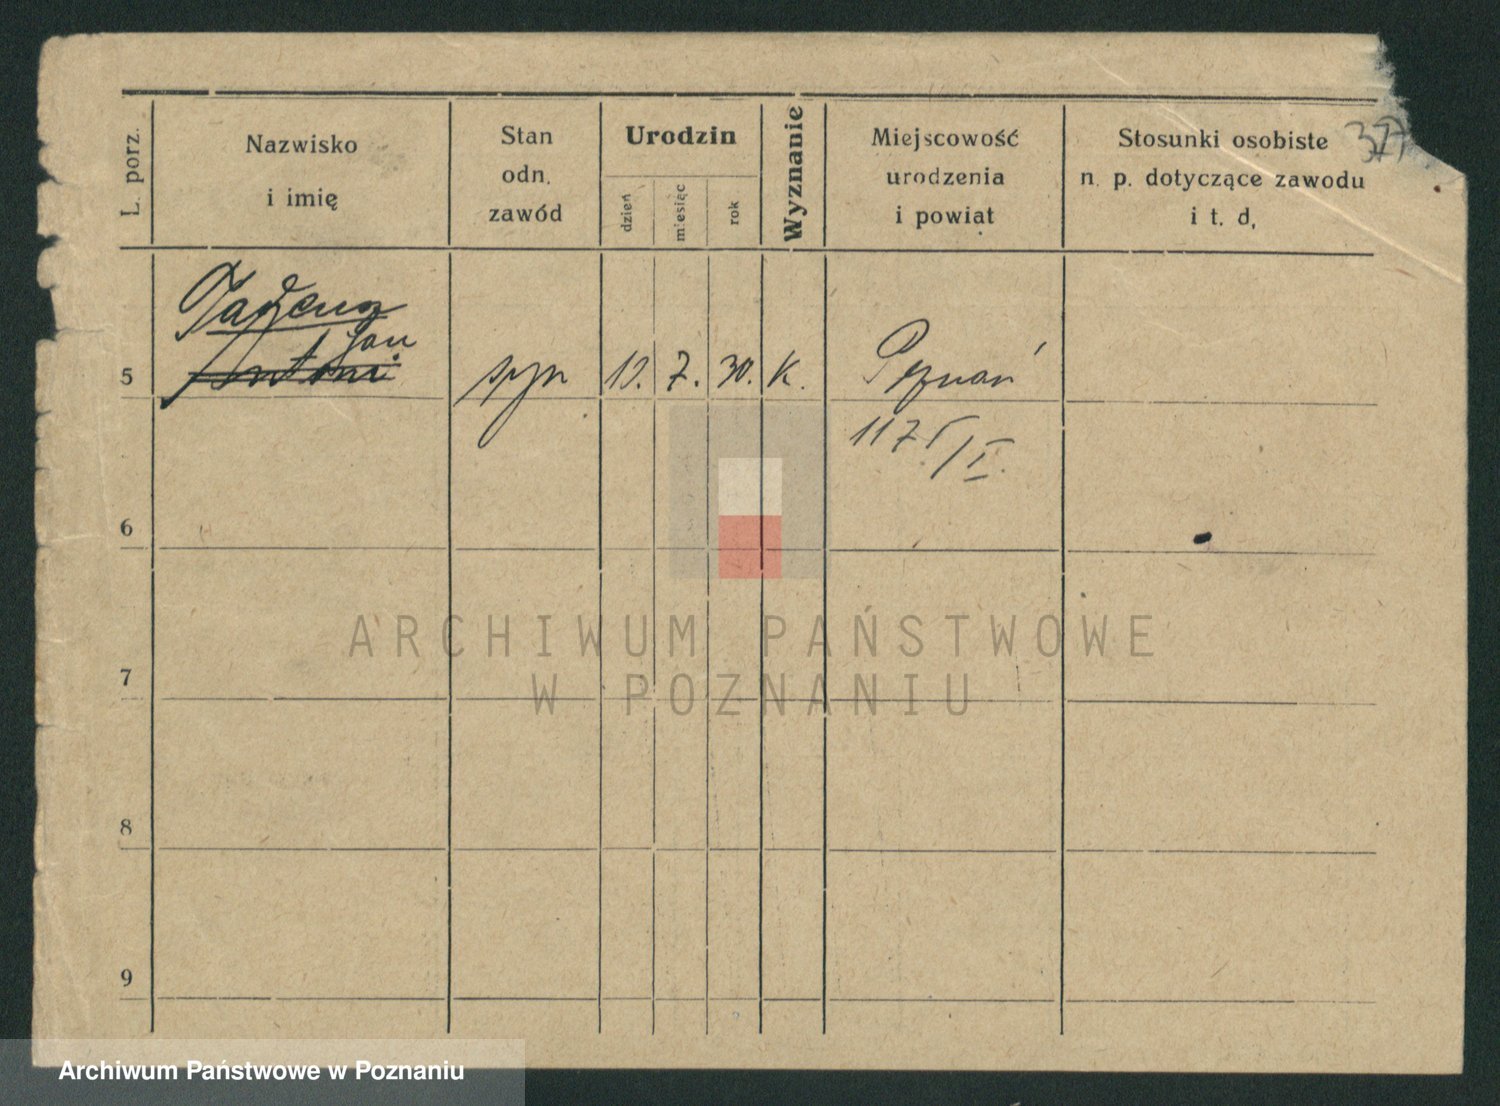 377
L. porz.
Nazwisko
i imię
Stan
odn.
zawód
Urodzin
dzień
miesiąc
rok
Wyznanie
Miejscowość
urodzenia
i powiat
Stosunki osobiste
n. p. dotyczące zawodu
i t. d,
Tadeusz
Jan
5 Antoni syn 7. 30. K. Poznań
6
7
8
9
ARCHIWUM PAŃSTWOWE
W POZNANIU
Archiwum Państwowe w Poznaniu